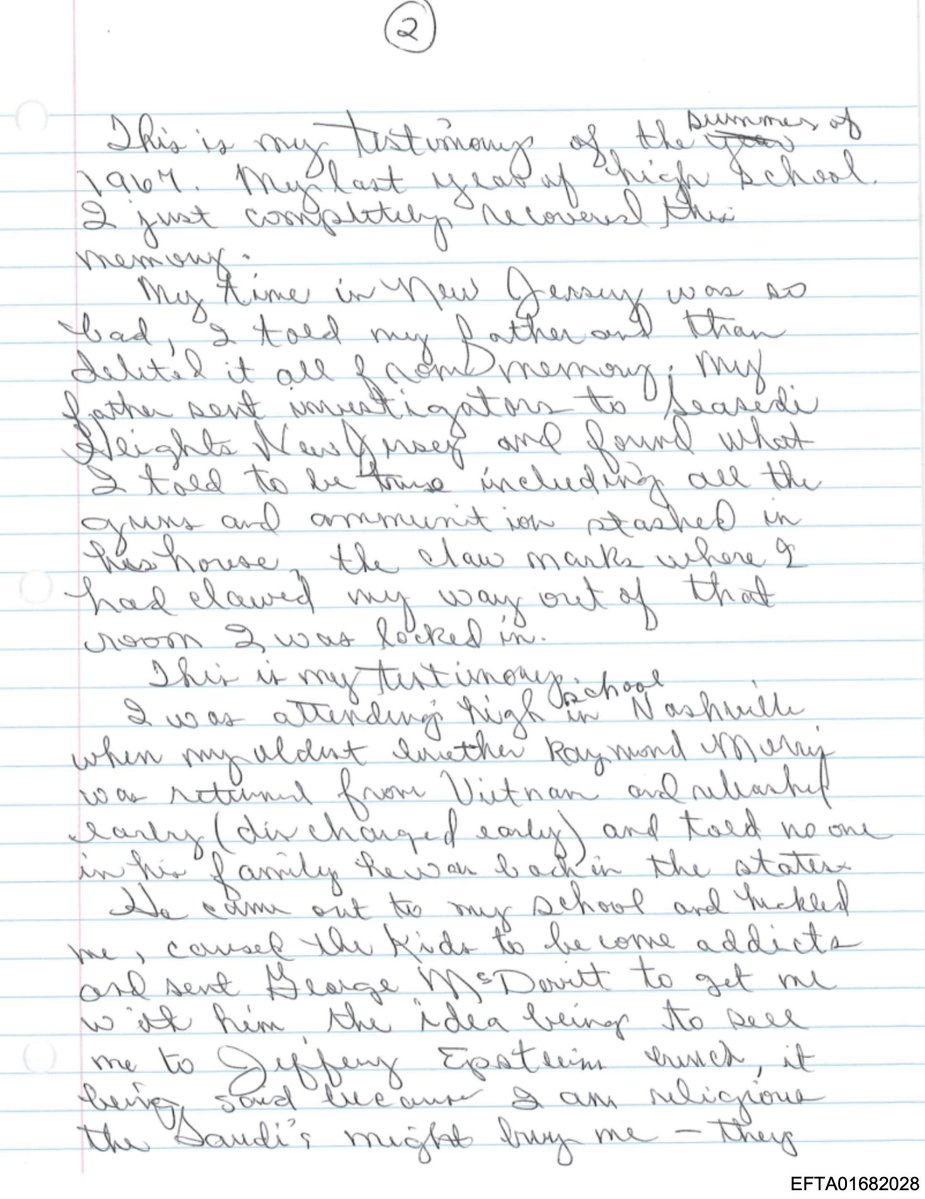 2
This is my testimony of the summer of
1967. My last year of high school.
I just completely recovered this
memory.
My time in New Jersey was so
bad, I told my father and than
deleted it all from memory. My
father sent investigators to Seasedi
Heights New Jersey and found what
I told to be true including all the
guns and ammunition stashed in
his house, the claw marks where I
had clawed my way out of that
room I was locked in.
This is my testimony
I was attending high school in Nashville
when my oldest brother Raymond
was returned from Vietnam and
early (discharged early) and told no one
in his family he was back in the states.
He came out to my school and heckled
me, caused the kids to become addicts
and sent George McDevitt to get me
with him, the idea being to sell
me to Jeffery Epstein bunch, it
being said because I am religious
the Saudi's might buy me – they
EFTA01682028